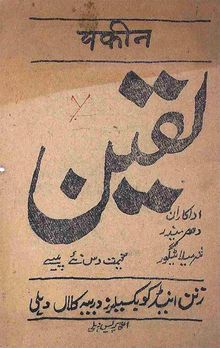 यकीन
یقین
اداکاران
دھرمیندر
شرمیلا ٹیگور
قیمت دس نئے پیسے
رتن اینڈ کو بکسیلرز دریبہ کلاں دہلی